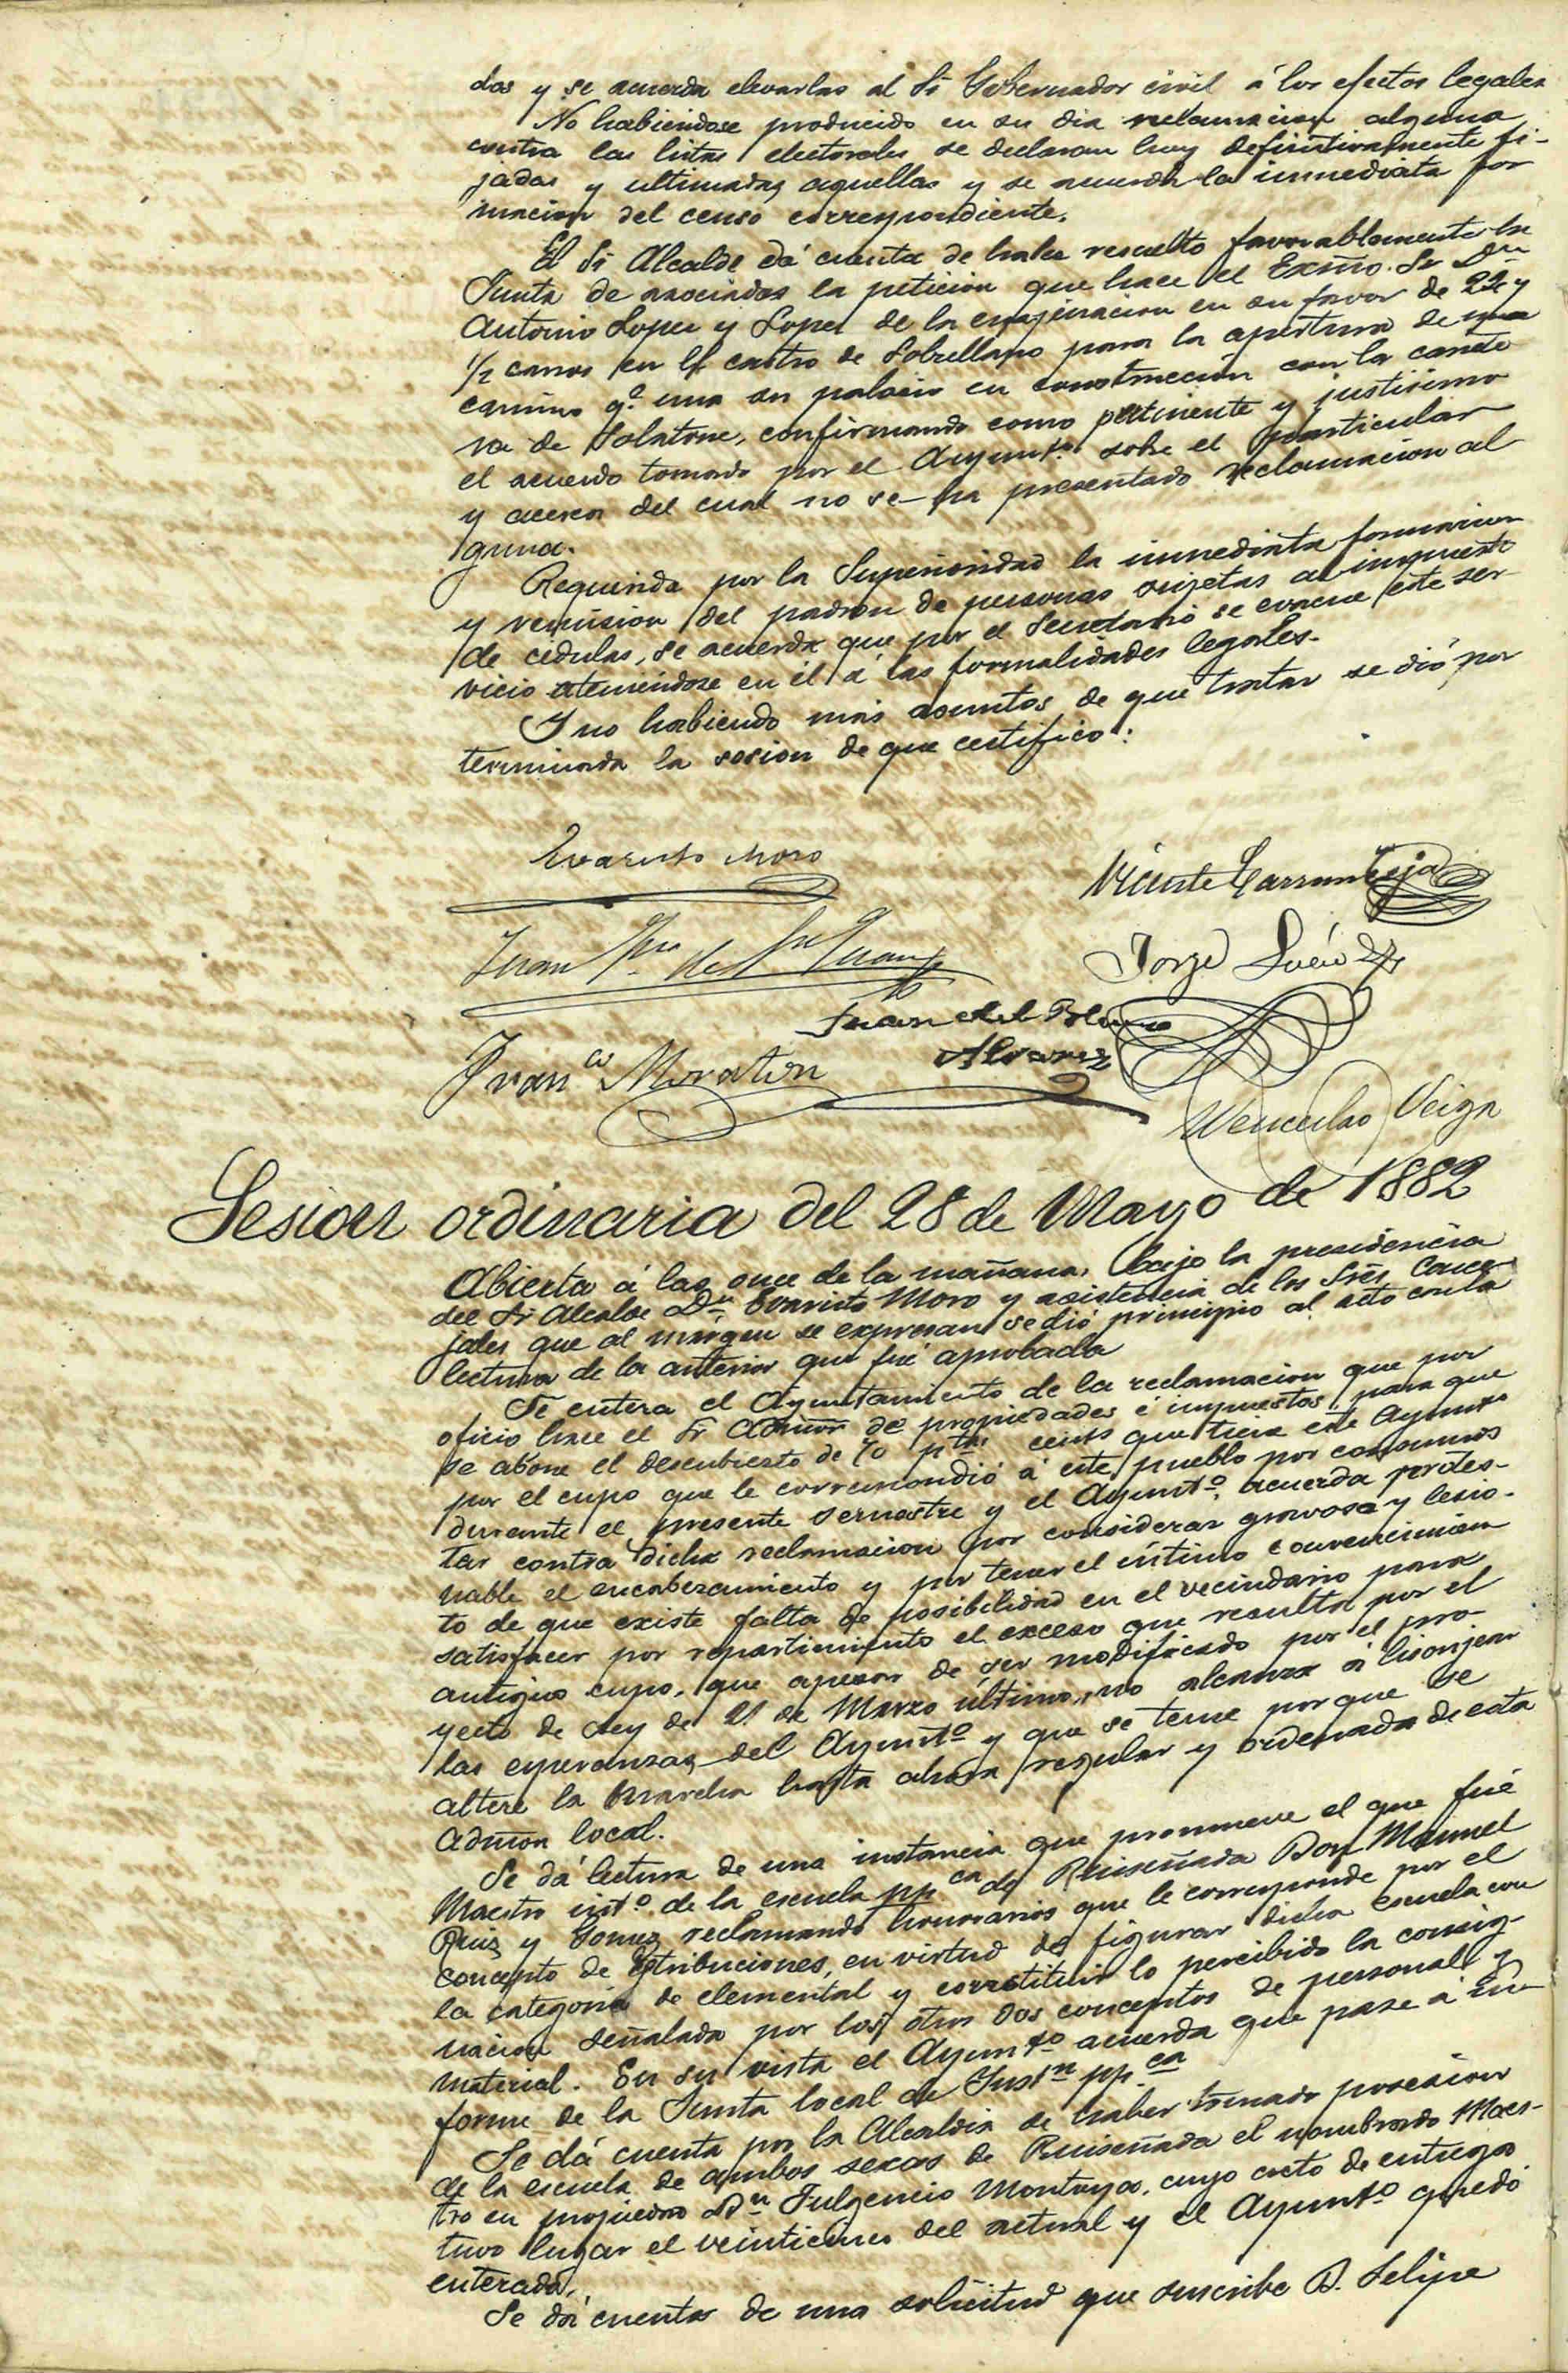 dos y se acuerda elevarlas al Sr Gobernador civil á los efectos legales
No habiendose producido en su dia reclamacion alguna
contra las listas electorales se declaran hoy definitivamente fi-
jadas y ultimadas aquellas y se acuerda la inmediata for
macion del censo correspondiente.
El Sr Alcalde dá cuenta de haber resuelto favorablemente la
Junta de asociados la peticion que hace el Exsmo. Sr Dn
Antonio Lopez y Lopez de la enajenacion en su favor de 22 y
1/2 carros en el castro de Sobrellano para la apertura de una
camino q.e una su palacio en construccion con la carrete
ra de Solatorre, confirmando como pertinente y justisimo
el acuerdo tomado por el Ayunto. sobre el particular
y acerca del cual no se ha presentado reclamacion al
guna.
Requerida por la Superioridad la inmediata formacion
y remision del padron de personas sujetas al impuesto
de cédulas, se acuerda que por el Secretario se evacue este ser-
vicio ateniendose en él á las formalidades legales.
Y no habiendo más asuntos de que tratar se dió por
terminada la sesion de que certifico:
Evaristo Moro
Vicente Carranceja
Juan
Jorge
Juan del
Alvarez
Fran.co Moraton
Wenceslao Veiga
Sesion ordinaria del 28 de Mayo de 1882
Abierta á las once de la mañana, bajo la presidencia
del Sr Alcalde Dn Evaristo Moro y asistencia de los Srēs Conce-
jales que al márgen se expresan se dió principio al acto con la
lectura de la anterior que fué aprobada
Se entera el Ayuntamiento de la reclamacion que por
oficio hace el Sr Admor de propiedades é impuestos para que
se abone el descubierto de 70 ptas cents que tiene este Ayunto
por el cupo que le correspondió á este pueblo por consumos
durante el presente semestre y el Ayunto. acuerda protes-
tar contra dicha reclamacion por considerar gravosa y lesio-
nable el encabezamiento y por tener el íntimo convencimien
to de que existe falta de posibilidad en el vecindario para
satisfacer por repartimiento el exceso que resulta por el
antiguo cupo, que apesar de ser modificado por el pro-
yecto de Ley de 21 de Marzo último, no alcanza á lisonjear
las esperanzas del Ayunto. y que se teme porque se
altere la marcha hasta ahora regular y ordenada de esta
Admon local.
Se dá lectura de una instancia que promueve el que fué
Maestro int.o de la escuela pp.ca de Ruiseñada Don Manuel
Ruiz y Gomez reclamando honorarios que le corresponde por el
concepto de retribuciones, en virtud de figurar dicha escuela con
la categoria de elemental y constituir lo percibido la consig-
nacion señalada por los otros dos conceptos de personal y
material. En su vista el Ayunto. acuerda que pase á in-
forme de la Junta local de Instn pp.ca
Se dá cuenta por la Alcaldia de haber tomado posesion
de la escuela de ambos sexos de Ruiseñada el nombrado Maes-
tro en propiedad Dn Fulgencio Montoya, cuyo acto de entrega
tuvo lugar el veinticinco del actual y el Ayunto. quedó
enterado.
Se dá cuenta de una solicitud que suscribe D. Felipe